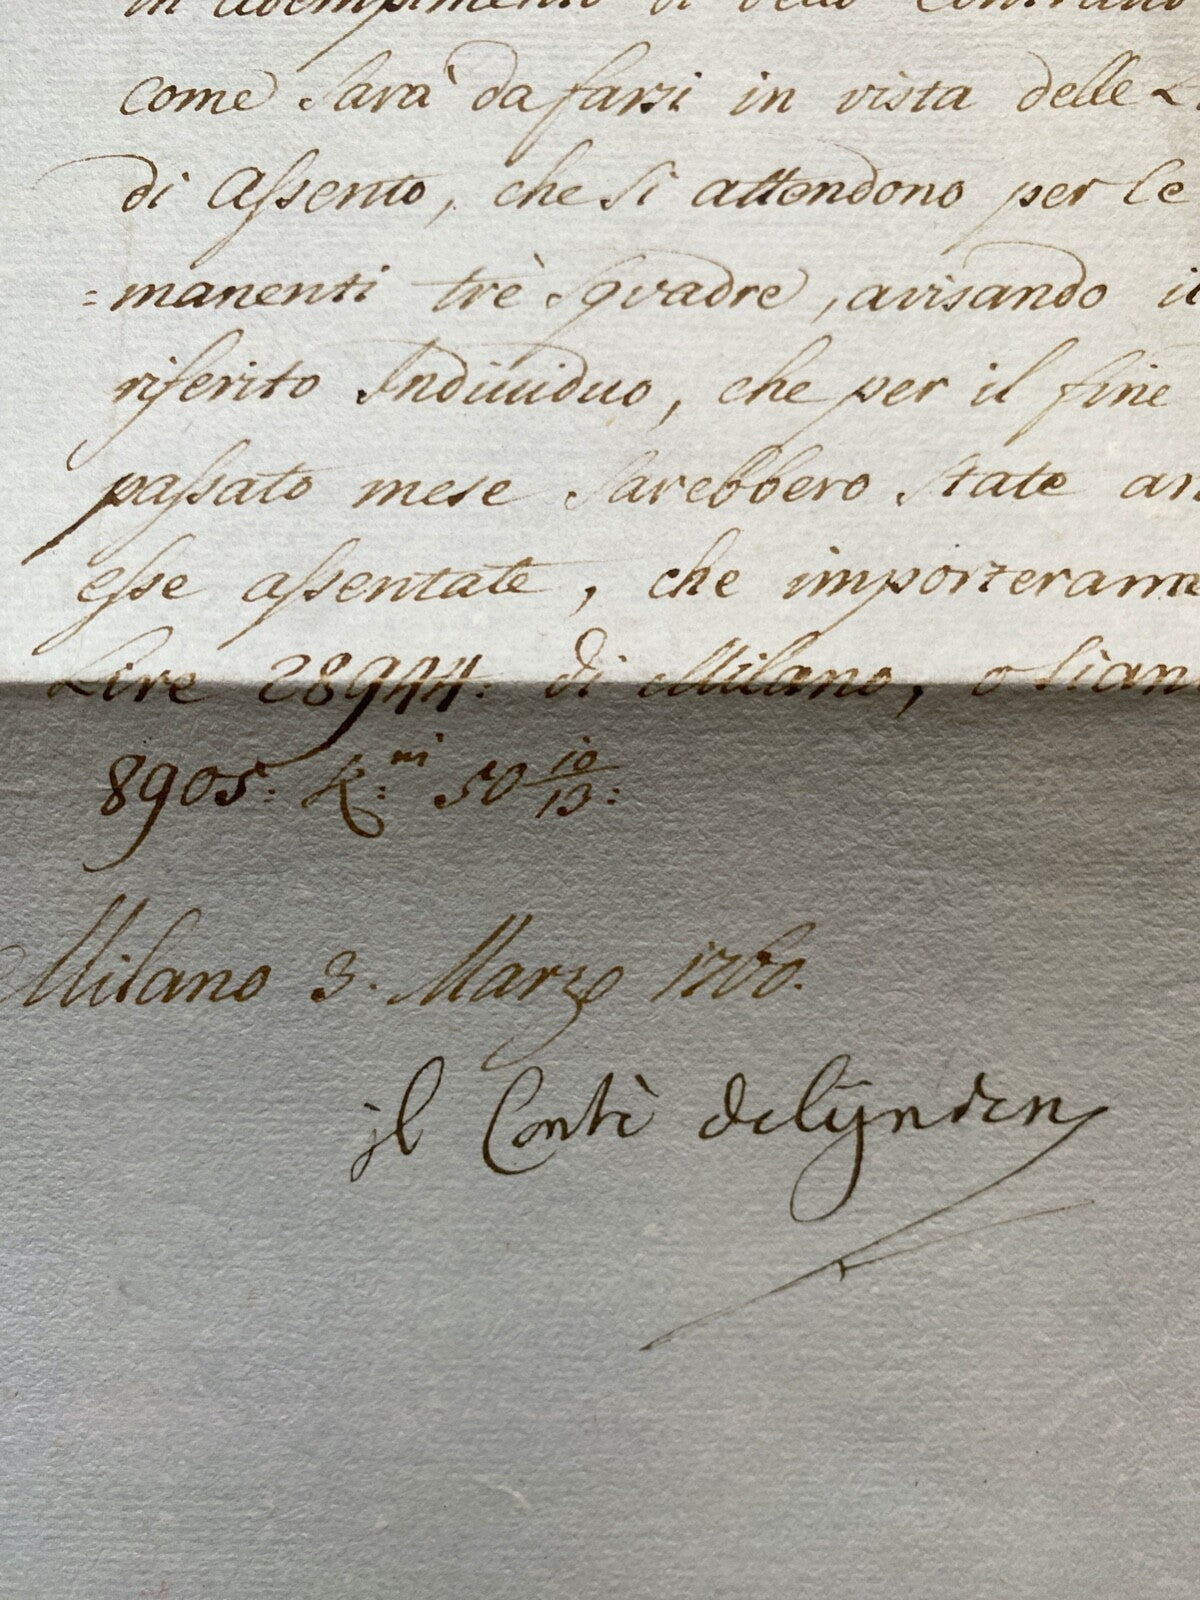 in adempimento di detto Contratto
come Sarà da farsi in vista delle L
di Assento, che Si attendono per le
=manenti trè Squadre, avisando il
riferito Individuo, che per il fine
passato mese Sarebbero State an
esse assentate, che importeranno
Lire 28944: di Milano, o Sian
8905: K:ni 50 10/13:
Milano 3. Marzo 1760.
il Contè delynden